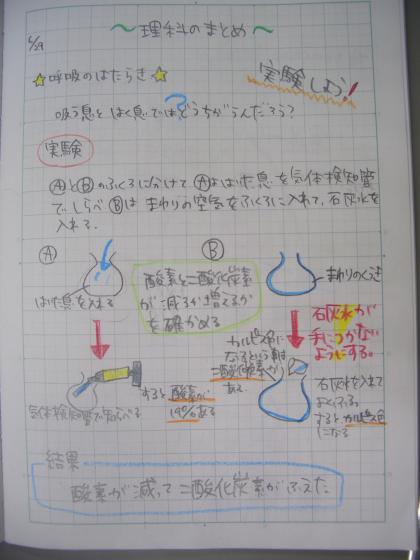 6/29
〜理科のまとめ〜
☆呼吸のはたらき☆
実験しよう!
吸う息とはく息ではどうちがうんだろう?
実験
ⒶとⒷのふくろに分けてⒶははいた息を気体検知管
でしらべⒷはまわりの空気をふくろに入れて、石灰水を
入れる。
Ⓐ
はいた息を入れる
気体検知管で調べる
すると酸素が
19%ある
酸素と二酸化炭素
が減るか増えるか
を確かめる
Ⓑ
まわりのくうき
石灰水が
手につかない
ようにする。
カルピス色に
なるという事は
二酸化炭素が
ある。
石灰水を入れて
よくふる。
するとカルピス色
になる
結果
酸素が減って二酸化炭素がふえた